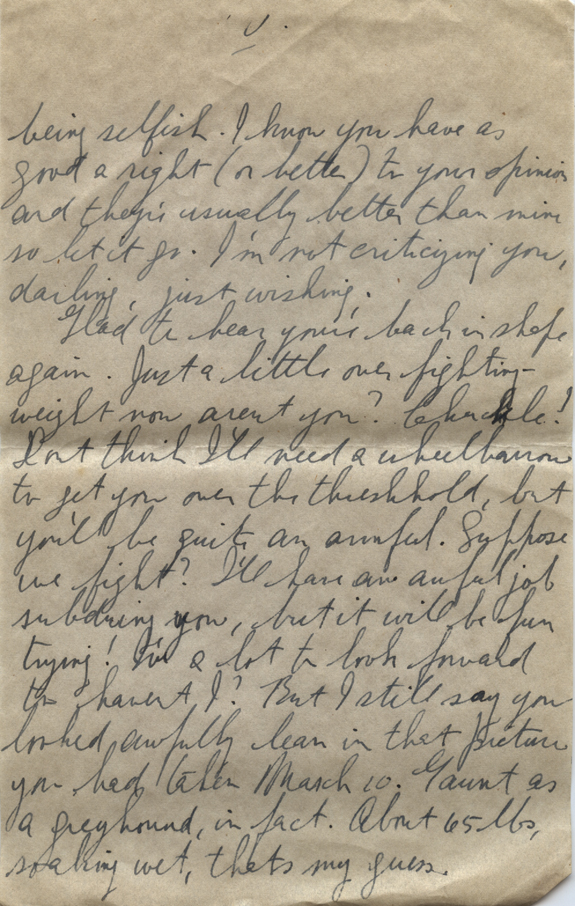 being selfish. I know you have as
good a right (or better) to your opinion
and they're usually better than mine
so let it go. I'm not criticizing you,
darling, just wishing.
Glad to hear you're back in shape
again. Just a little over fighting-
weight now arent you? Chuckle!
Dont think I'll need a wheelbarrow
to get you over the threshhold, but
you'll be quite an armful. Suppose
we fight? I'll have an awful job
subduing you, but it will be fun
trying! I've a lot to look forward
to havent I? But I still say you
looked awfully lean in that picture
you had taken March 10. Gaunt as
a greyhound, in fact. About 65 lbs,
soaking wet, thats my guess.